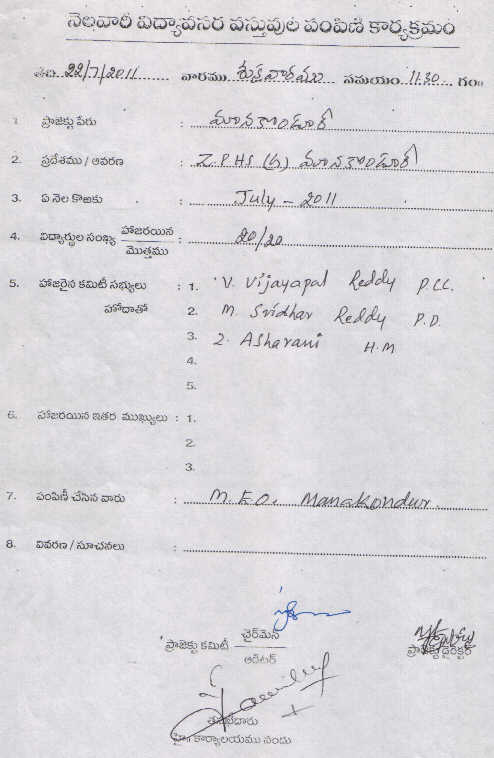 నెలవారీ విద్యావసర వస్తువుల పంపిణీ కార్యక్రమం
తేది 22/7/2011 వారము శుక్రవారము సమయం 11.30 గం॥
1. ప్రాజెక్టు పేరు : మానకొండూర్
2. ప్రదేశము / ఆవరణ : Z.P.H.S (G) మానకొండూర్
3. ఏ నెల కొఱకు : July - 2011
4. విద్యార్థుల సంఖ్య హాజరయిన / మొత్తము : 20/20
5. హాజరైన కమిటీ సభ్యులు : 1. V. Vijayapal Reddy P.CC.
హోదాతో 2. M. Sridhar Reddy P.D.
3. Z. Asharani H.M
4.
5.
6. హాజరయిన ఇతర ముఖ్యులు : 1.
2.
3.
7. పంపిణీ చేసిన వారు : M.E.O. Manakondur.
8. వివరణ / సూచనలు :
ప్రాజెక్టు కమిటీ ఛైర్‌మెన్ / ఆడిటర్
ప్రాజెక్టు డైరెక్టర్
తహశీలుదారు
కార్యాలయము నందు